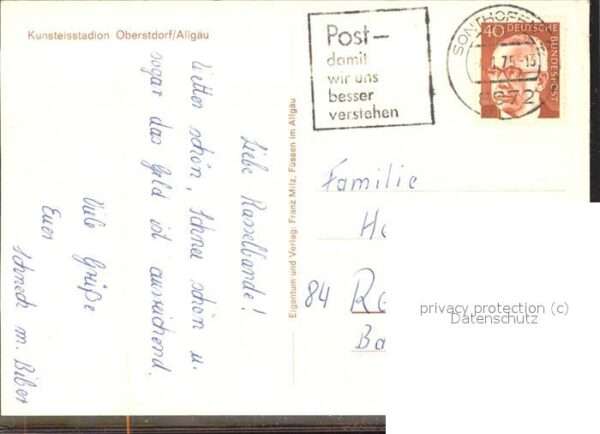 Kunsteisstadion Oberstdorf/Allgäu
Liebe Rasselbande!
Wetter schön, Schnee schön u.
sogar das Geld ist ausreichend.
Viele Grüße
Euer
Schneck m. Biber
Eigentum und Verlag: Franz Milz, Füssen im Allgäu
Post–
damit
wir uns
besser
verstehen
SONTHOFEN
8972
40
DEUTSCHE
BUNDESPOST
Familie
He
84 Re
Ba
privacy protection (c)
Datenschutz